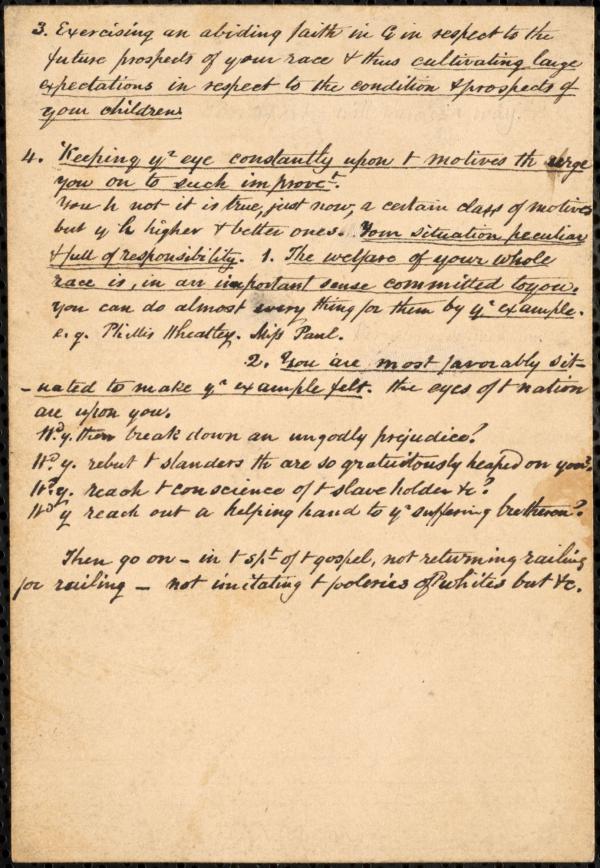 3. Exercising an abiding faith in G in respect to the
future prospects of your race & thus cultivating large
expectations in respect to the condition & prospects of
your children
4. Keeping yr eye constantly upon t motives th urge
you on to such improvet.
You h not it is true, just now, a certain class of motives
but y h higher & better ones. Your situation peculiar
& full of responsibility. 1. The welfare of your whole
race is, in an important sense committed to you.
You can do almost every thing for them by yr example.
e.g. Phillis Wheatley. Miss Paul.
2. You are most favorably sit-
-uated to make yr example felt. the eyes of t nation
are upon you.
Wd y. then break down an ungodly prejudice?
Wd y. rebut t slanders th are so gratuitously heaped on you?
Wd y. reach t conscience of t slave holder &c?
Wd y reach out a helping hand to yr suffering bretheren?
Then go on - in t spt of t gospel, not returning railing
for railing - not imitating t policies of whites but &c.